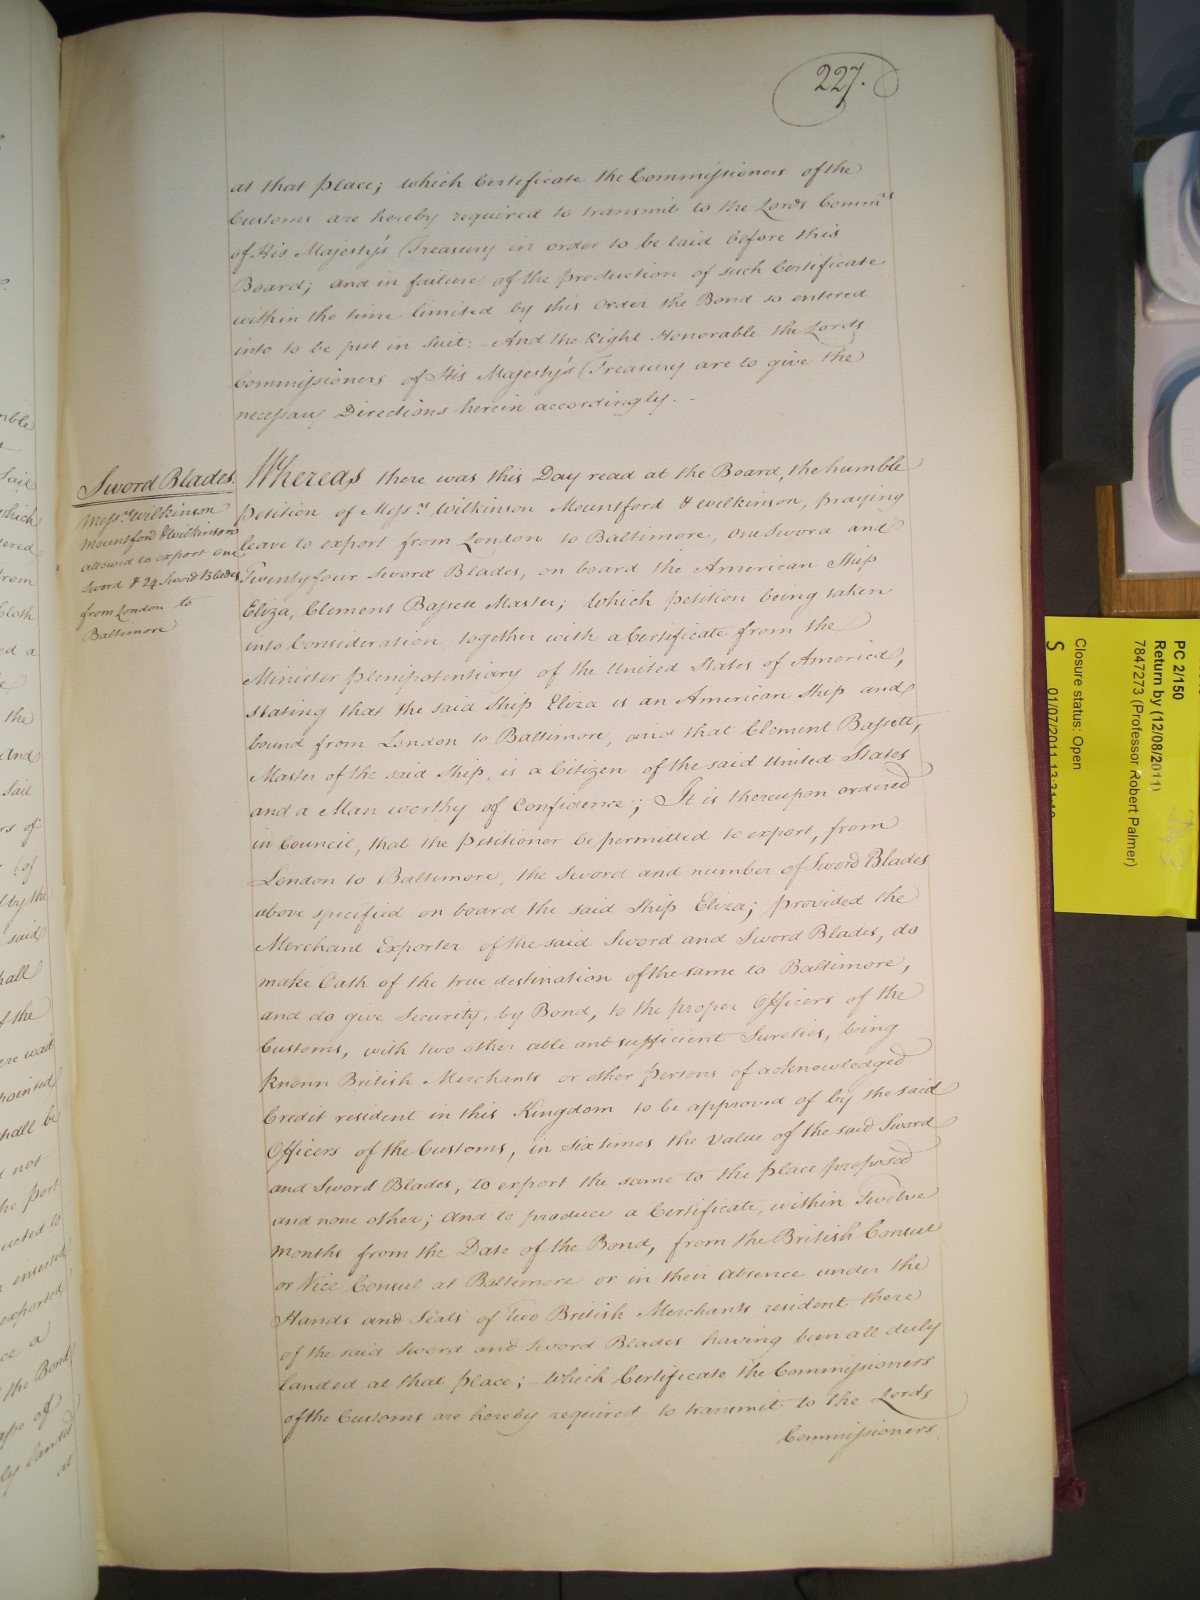 227.
at that place; which Certificate the Commissioners of the
Customs are hereby required to transmit to the Lords Comm.rs
of His Majesty's Treasury in order to be laid before this
Board; and in failure of the production of such Certificate
within the time limited by this Order the Bond so entered
into to be put in Suit: And the Right Honorable the Lords
Commissioners of His Majesty's Treasury are to give the
necessary Directions herein accordingly. -
Sword Blades.
Mess.rs Wilkinson
Mountford & Wilkinson
allowed to export one
Sword & 24 Sword Blades
from London to
Baltimore
Whereas there was this Day read at the Board, the humble
Petition of Mess.rs Wilkinson Mountford & Wilkinson, praying
leave to export from London to Baltimore, One Sword and
Twenty four Sword Blades, on board the American Ship
Eliza, Clement Bassett Master; Which petition being taken
into Consideration, together with a Certificate from the
Minister plenipotentiary of the United States of America,
stating that the said Ship Eliza is an American Ship and
bound from London to Baltimore, and that Clement Bassett,
Master of the said Ship, is a Citizen of the said United States
and a Man worthy of Confidence; It is thereupon ordered
in Council, that the Petitioner be permitted to export, from
London to Baltimore, the Sword and number of Sword Blades
above specified on board the said Ship Eliza; provided the
Merchant Exporter of the said Sword and Sword Blades, do
make Oath of the true destination of the same to Baltimore,
and do give Security, by Bond, to the proper Officers of the
Customs, with two other able and sufficient Sureties, being
known British Merchants or other Persons of acknowledged
Credit resident in this Kingdom to be approved of by the said
Officers of the Customs, in Six times the Value of the said Sword
and Sword Blades, to export the same to the place proposed
and none other; And to produce a Certificate, within Twelve
months from the Date of the Bond, from the British Consul
or Vice Consul at Baltimore or in their Absence under the
Hands and Seals of two British Merchants resident there
of the said Sword and Sword Blades having been all duly
landed at that place; which Certificate the Commissioners
of the Customs are hereby required to transmit to the Lords
Commissioners
PC 2/150
Return by (12/08/2011)
7847273 (Professor Robert Palmer)
Closure status: Open
S